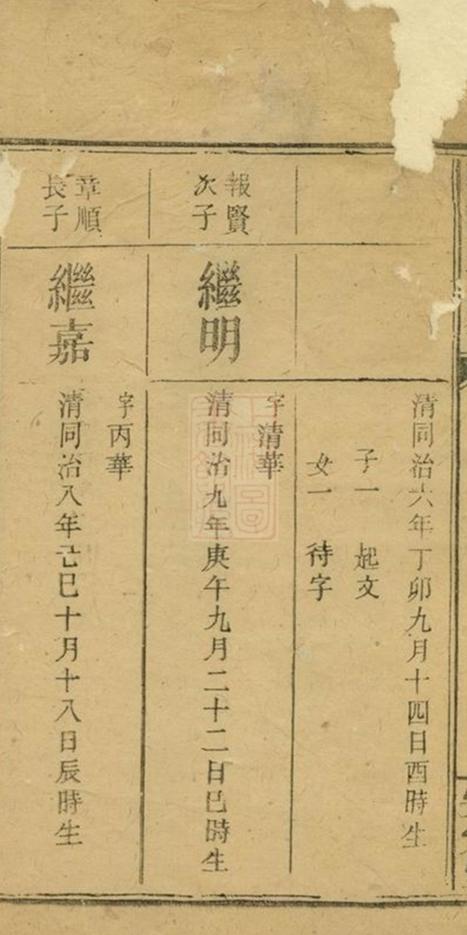 清同治六年丁卯九月十四日酉時生
子一　起文
女一　待字
報賢
次子
繼明
字清華
清同治九年庚午九月二十二日巳時生
章順
長子
繼嘉
字丙華
清同治八年己巳十月十八日辰時生